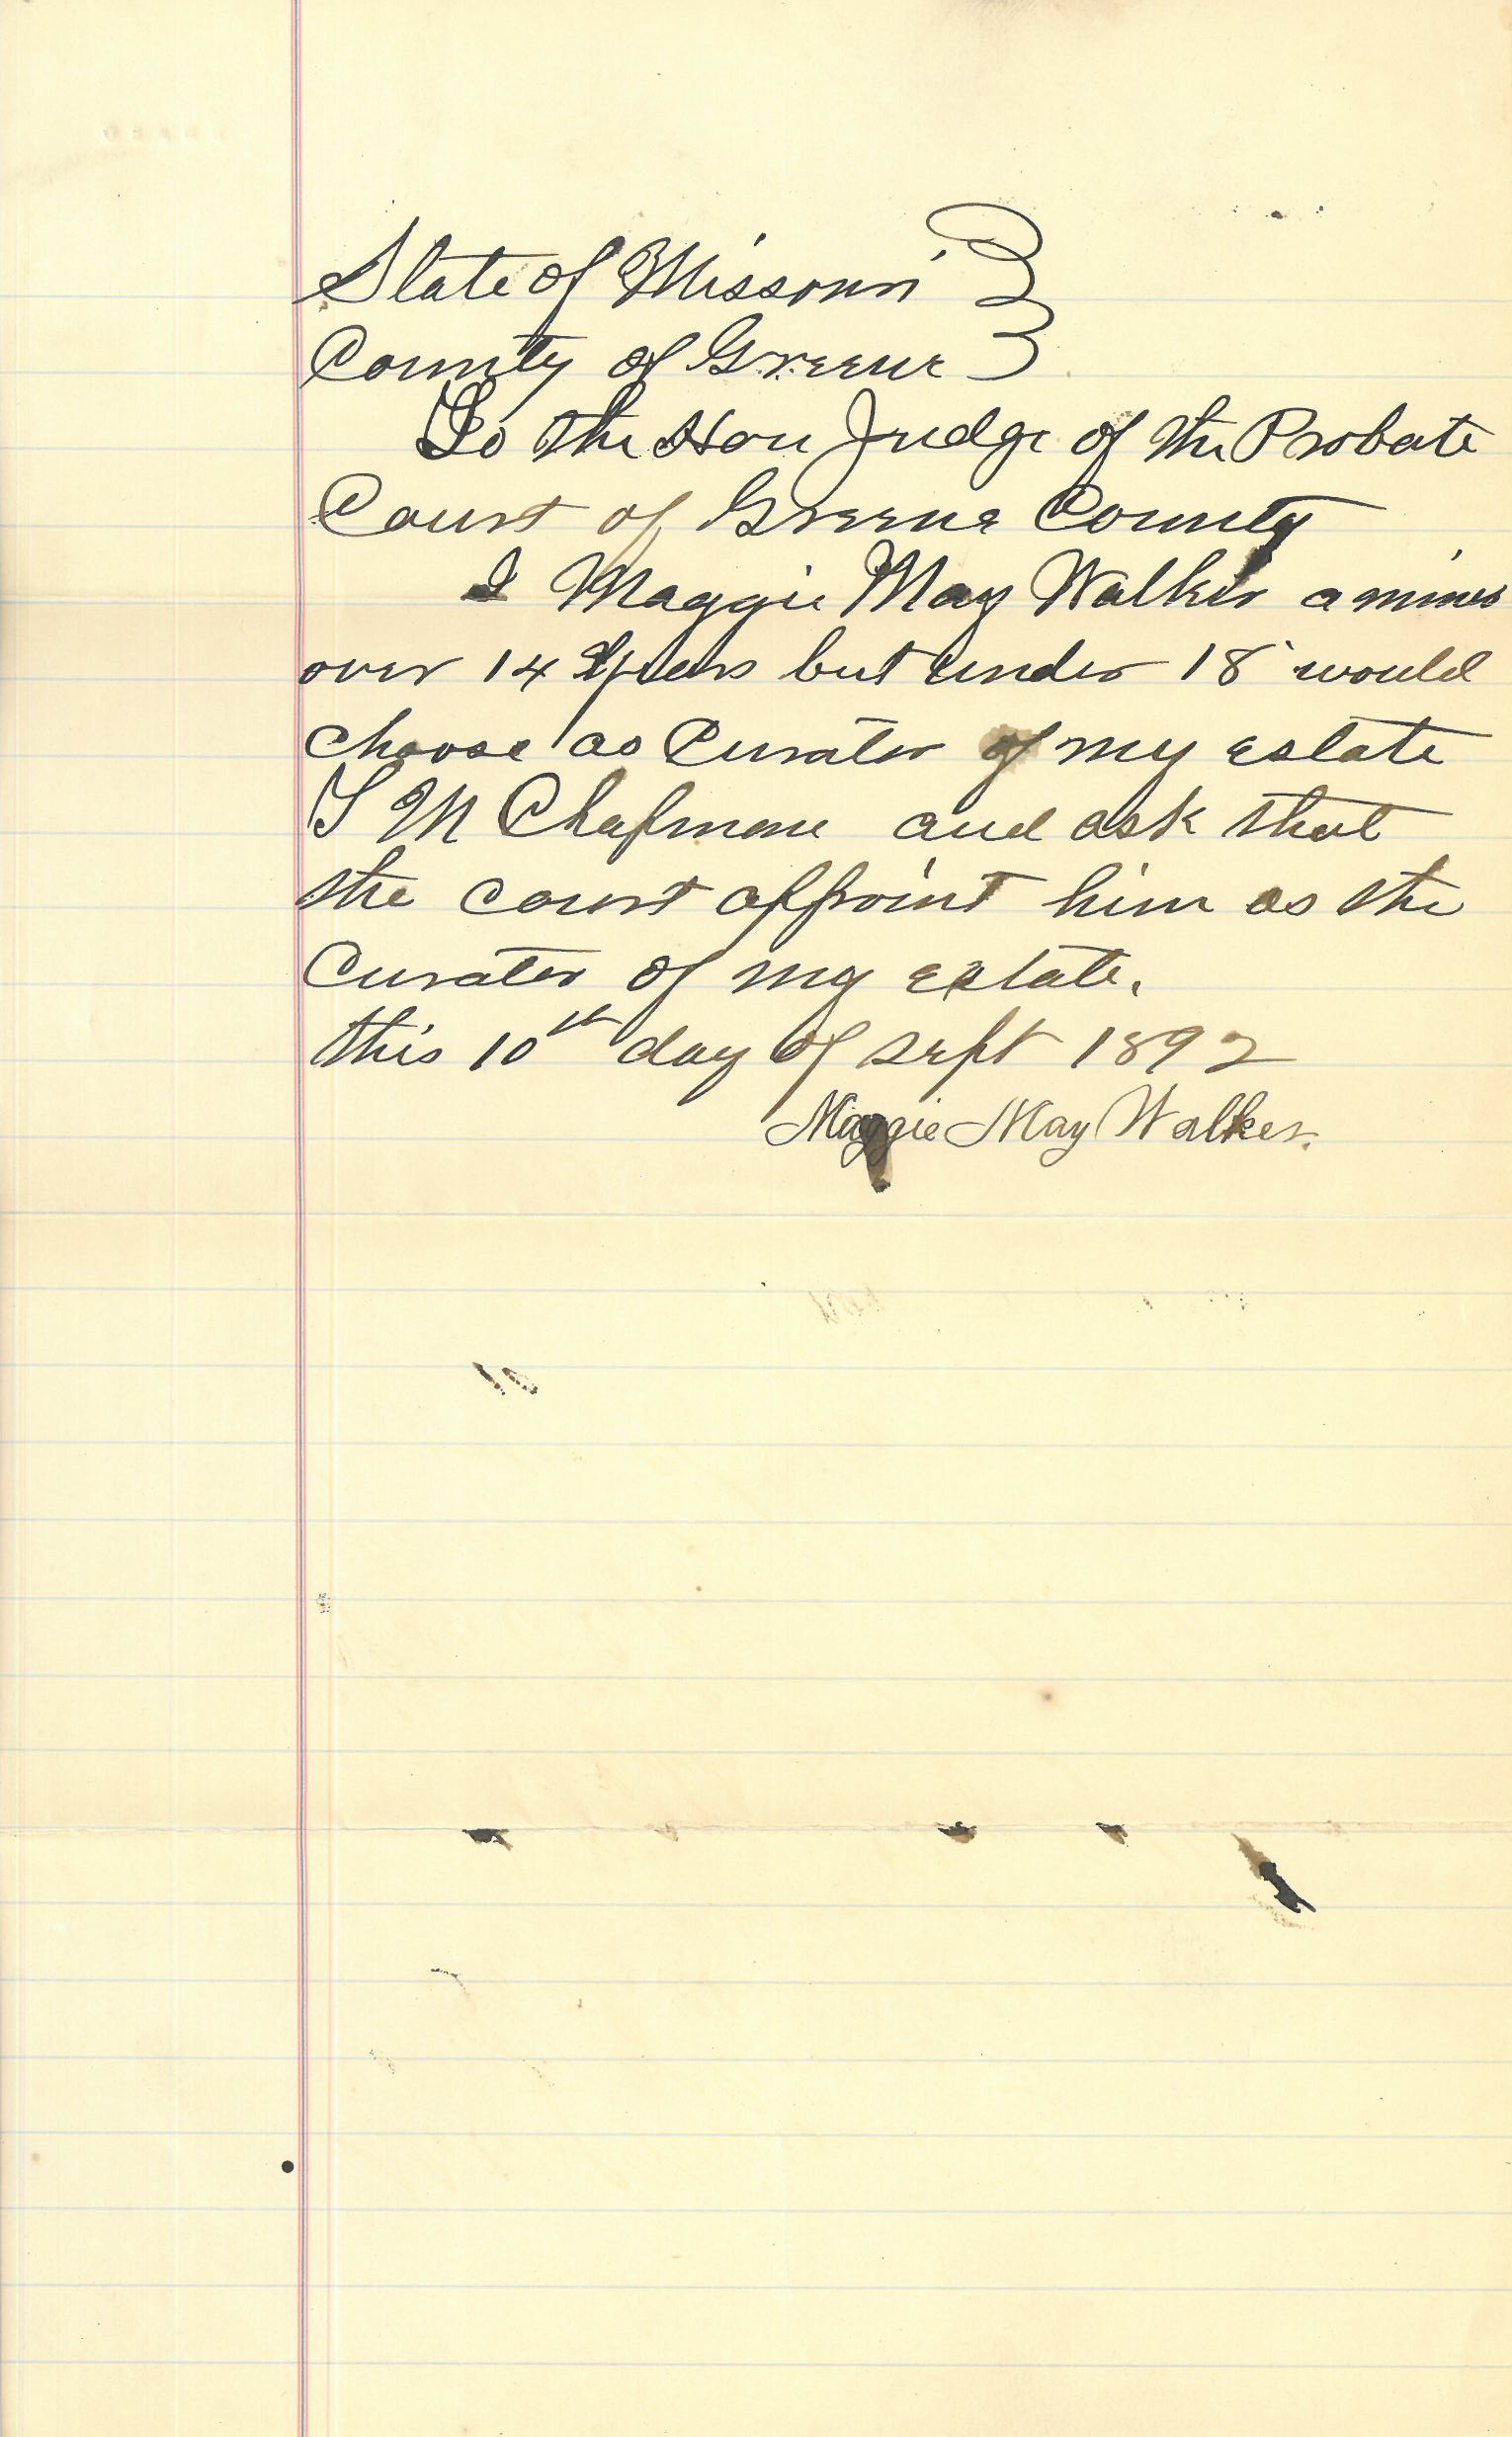 State of Missouri
County of Greene
To the Hon Judge of the Probate
Court of Greene County
I Maggie May Walker a minor
over 14 years but under 18 would
choose as Curator of my estate
T M Chapman and ask that
the court appoint him as the
Curator of my estate.
this 10th day of Sept 1892
Maggie May Walker.